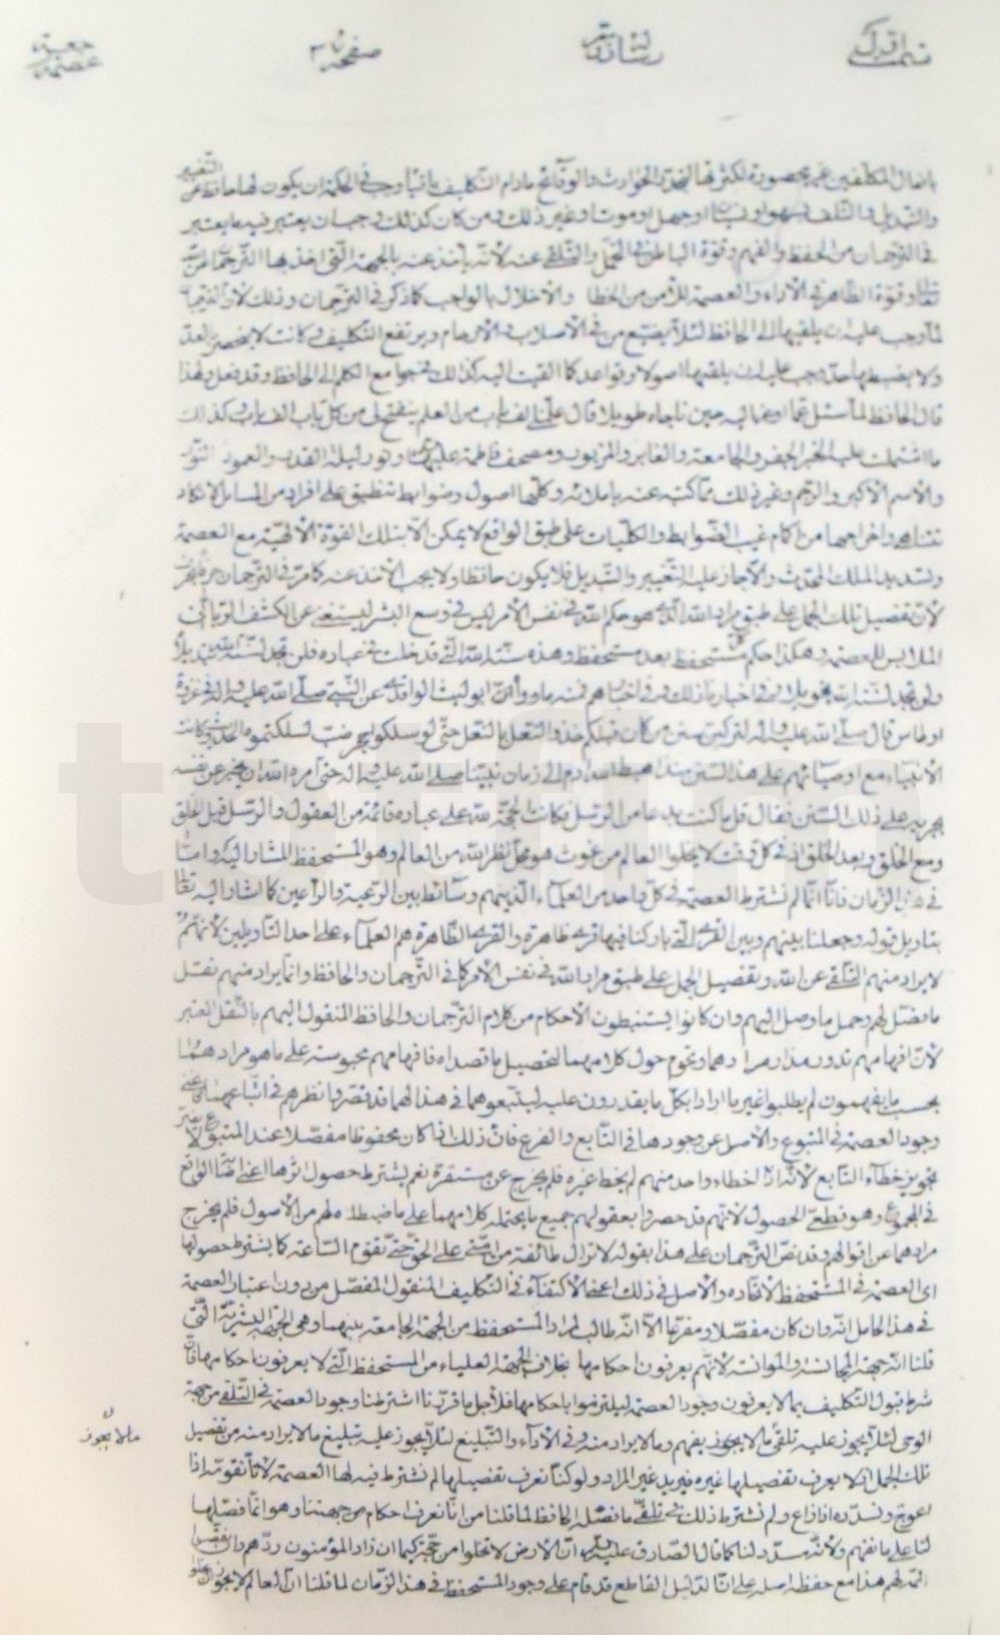 بافعال المكلفين غير محصورة لكثرتها لتجدد الحوادث والوقائع مادام التكليف باقيا وجب في الحكمة ان يكون لها حافظ عن التغيير
والتبديل والتلف بسهو او نسيان او جهل او موت او غير ذلك ومن كان كذلك وجب ان يعتبر فيه ما يعتبر
في الترجمان من الحفظ والفهم وقوة الباطن في التحمل والتلقي عنه لانه يأخذ عنه بالجهة التي اخذ بها الترجمان عن الله
تعالى وقوة الظاهر في الاداء والعصمة للأمن من الخطا والاخلال بالواجب كما ذكر في الترجمان وذلك لان الترجمان
لما وجب عليه ان يلقيها الى الحافظ لئلا يضيع من في الاصلاب والارحام ويرتفع التكليف وكانت لا يحصرها العد
ولا يضبطها حد وجب عليه ان يلقيها اصولا وقواعد كما القيت اليه كذلك من جوامع الكلم الى الحافظ وقد فعل ولهذا
قال الحافظ لما سئل عما اوعز اليه حين ناجاه طويلا قال علمني الف باب من العلم ينفتح لي من كل باب الف باب وكذلك
ما اشتملت عليه الجفر والجامعة والغابر والمزبور ومصحف فاطمة عليها السلام ونور ليلة القدر والعمود النور
والاسم الاكبر والرجم وغير ذلك مما كتبه عنه باملائه وكلها اصول وضوابط تنطبق على افراد من المسائل لا تكاد
تتناهى واخراجها من اكمام غيب الضوابط والكليات على طبق الواقع لا يمكن الا بتلك القوة الالهية مع العصمة
وتسديد الملك المحدث والا جاز عليه التغيير والتبديل فلا يكون حافظا ولا يجب الاخذ عنه كما مر في الترجمان
لان تفصيل تلك الجمل على طبق مراد الله الذي هو حكم الله في نفس الامر ليس في وسع البشر ليستغنى عن الكشف الرباني
الملابس للعصمة وهكذا حكم كل مستحفظ بعد مستحفظ وهذه سنة الله التي قد خلت في عباده فلن تجد لسنة الله تبديلا
ولن تجد لسنة الله تحويلا وفي اخبارنا ذلك وفي اخبارهم فمنه ما رواه ابو ليث الواقدي عن النبي صلى الله عليه واله في غزوة
اوطاس قال صلى الله عليه واله لتركبن سنن من كان قبلكم حذو النعل بالنعل حتى لو سلكوا جحر ضب لسلكتموه الحديث كانت
الانبياء مع اوصيائهم على هذا السنن منذ اهبط الله ادم الى زمان نبينا صلى الله عليه واله حتى امره الله ان يخبر عن نفسه
بجريه على ذلك السنن فقال قل ما كنت بدعا من الرسل فكانت الحجة لله على عباده قائمة من العقول والرسل قبل الخلق
ومع الخلق وبعد الخلق اذ في كل وقت لا يخلو العالم من غوث هو محل نظر الله من العالم وهو المستحفظ المشار اليه واما
في هذا الزمان فانا انما لم نشترط العصمة في كل واحد من العلماء الذين هم وسائط بين الرعية والراعين كما اشار اليه تعالى
بتاويل قوله وجعلنا بينهم وبين القرى التي باركنا فيها قرى ظاهرة والقرى الظاهرة هم العلماء على احد التاويلين لانهم
لا يراد منهم التلقي عن الله وتفصيل الجمل على طبق مراد الله في نفس الامر كما في الترجمان والحافظ وانما يراد منهم نقل
ما فصل لهم وحمل ما وصل اليهم وان كانوا يستنبطون الاحكام من كلام الترجمان والحافظ المنقول اليهم بالنقل المعتبر
لان افهامهم تدور مدار مرادهما وتحوم حول كلامهما لتحصيل ما قصداه فافهامهم محبوسة على ما هو مرادهما
بحسب ما يفهمون لم يطلبوا غير ما ارادا بكل ما يقدرون عليه ليتبعوهما في هذا لهما قد قصروا نظرهم في اتباعهما
وجود العصمة في المتبوع والاصل عن وجودها في التابع والفرع فان ذلك اذا كان محفوظا مفصلا عند المتبوع
تجويز خطاء التابع لانه اذا اخطاء واحد منهم لم يخط غيره فلم يخرج عن مستقره نعم يشترط حصول اثرها اعني اصابة الواقع
في المجموع وهو قطعي الحصول لانهم قد حصروا بعقولهم جميع ما يحتمله كلامهما على ما ضبطاه لهم من الاصول فلم يخرج
مرادهما عن اقوالهم وقد نص الترجمان على هذا بقوله لا تزال طائفة من امتي على الحق حتى تقوم الساعة كما يشترط حصولها
اي العصمة في المستحفظ لانفاده والاصل في ذلك اعني الاكتفاء في التكليف المنقول المفصل من دون اعتبار العصمة
في هذا الحامل انه وان كان مفصلا ومفرعا الا انه طالب لمراد المستحفظ من الجهة الجامعة بينهما وهي الجهة البشرية التي
قلنا انه جهة المجانسة والموانسة لانهم يعرفون احكامها بخلاف الجهة العلياء من المستحفظ التي لا يعرفون احكامها فان
شرط قبول التكليف بما لا يعرفون وجود العصمة ليلتزموا باحكامها فلاجل ما قررنا اشترطنا وجود العصمة في التلقي من جهة
الوحي لئلا يجوز عليه تلقي ما لا يجوز بفهم وما لا يراد منه وفي الاداء والتبليغ لئلا يجوز عليه تبليغ ما لا يراد منه من تفصيل
ما لا يجوز
تلك الجمل اذ لا يعرف تفصيلها غيره فيريد غير المراد ولو كنا نعرف تفصيلها لم نشترط فيه لها العصمة لانا نقومه اذا
اعوج ونسدده اذا زاغ ولم نشترط ذلك في تلقي ما فصله الحافظ لما قلنا من انا نعرف احكام من جهتنا وهو انما فصلها
لنا على ما نفهم ولانه مسدد لنا كما قال الصادق عليه السلام ان الارض لا تخلوا من حجة كيما ان زاد المؤمنون ردهم وان نقصوا
اتمه لهم هذا مع حفظه اصله على ان الدليل القاطع قد قام على وجود المستحفظ في هذا الزمان لما قلنا ان العالم لا يجوز